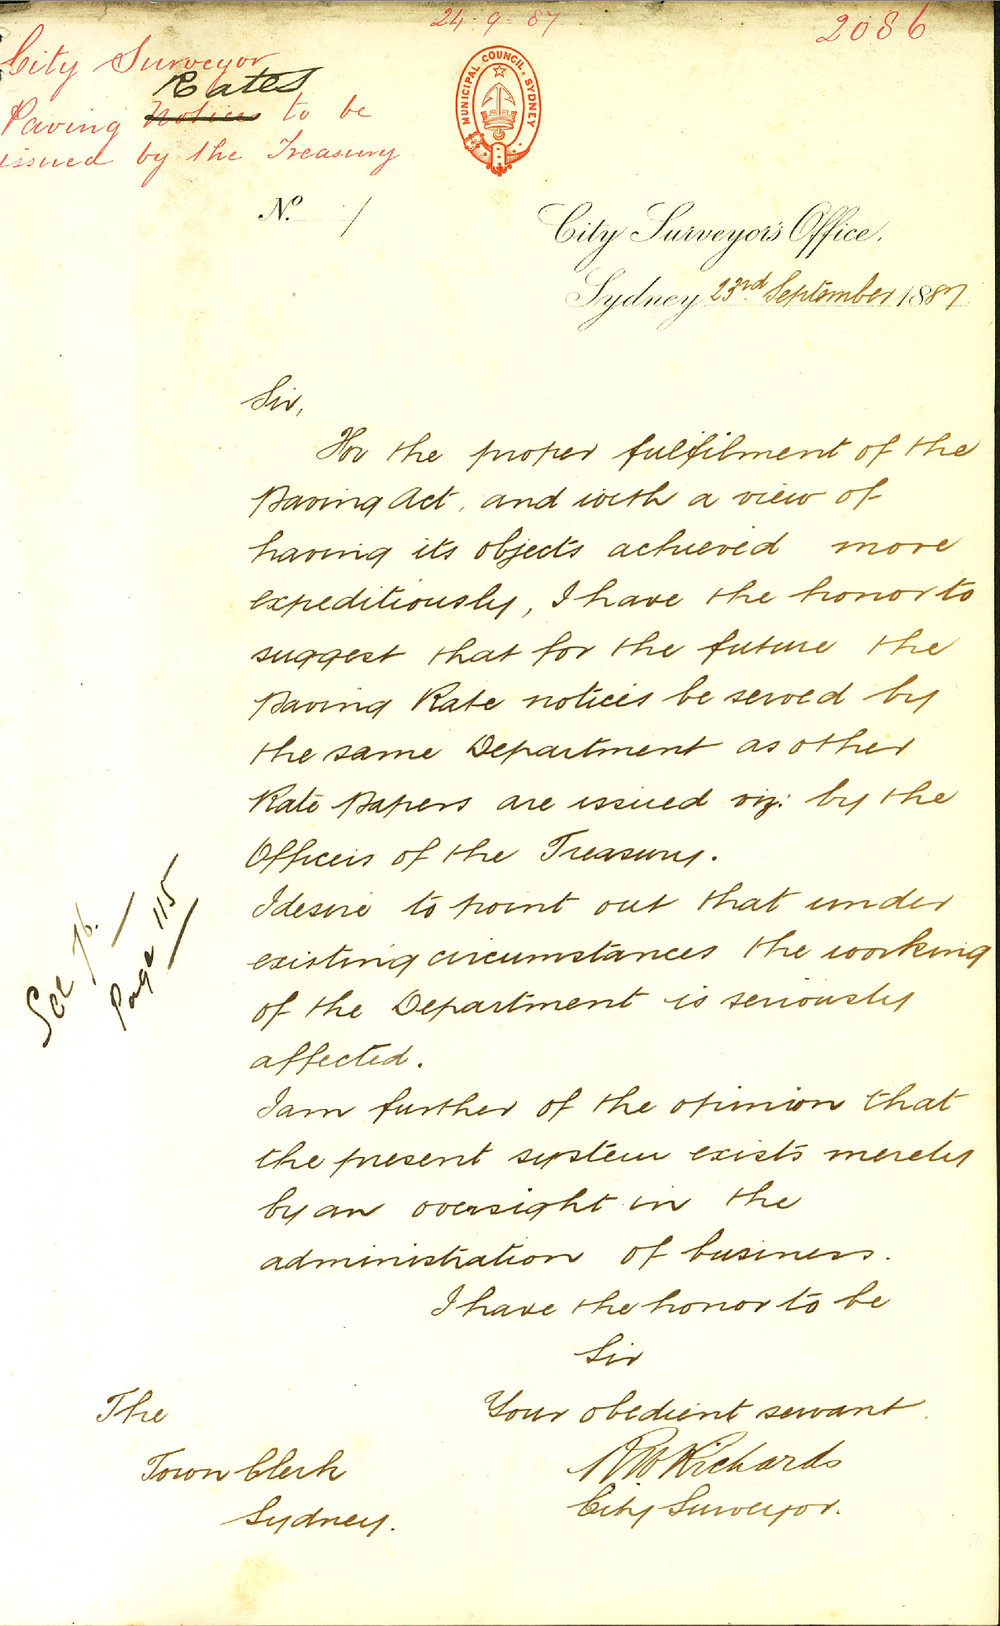 24-9-87
2086
City Surveyor
Rates
Paving Notices to be
issued by the Treasury
MUNICIPAL COUNCIL, SYDNEY
No. /
City Surveyor's Office.
Sydney 23rd September 1887
Sir,
For the proper fulfilment of the
Paving Act, and with a view of
having its objects achieved more
expeditiously, I have the honor to
suggest that for the future the
Paving Rate notices be served by
the same Department as other
Rate Papers are issued viz: by the
Officers of the Treasury.
I desire to point out that under
existing circumstances the working
of the Department is seriously
affected.
I am further of the opinion that
the present system exists merely
by an oversight in the
administration of business.
I have the honor to be
Sir
Your obedient servant
RW Richards
City Surveyor.
The
Town Clerk
Sydney.
See
Page 115